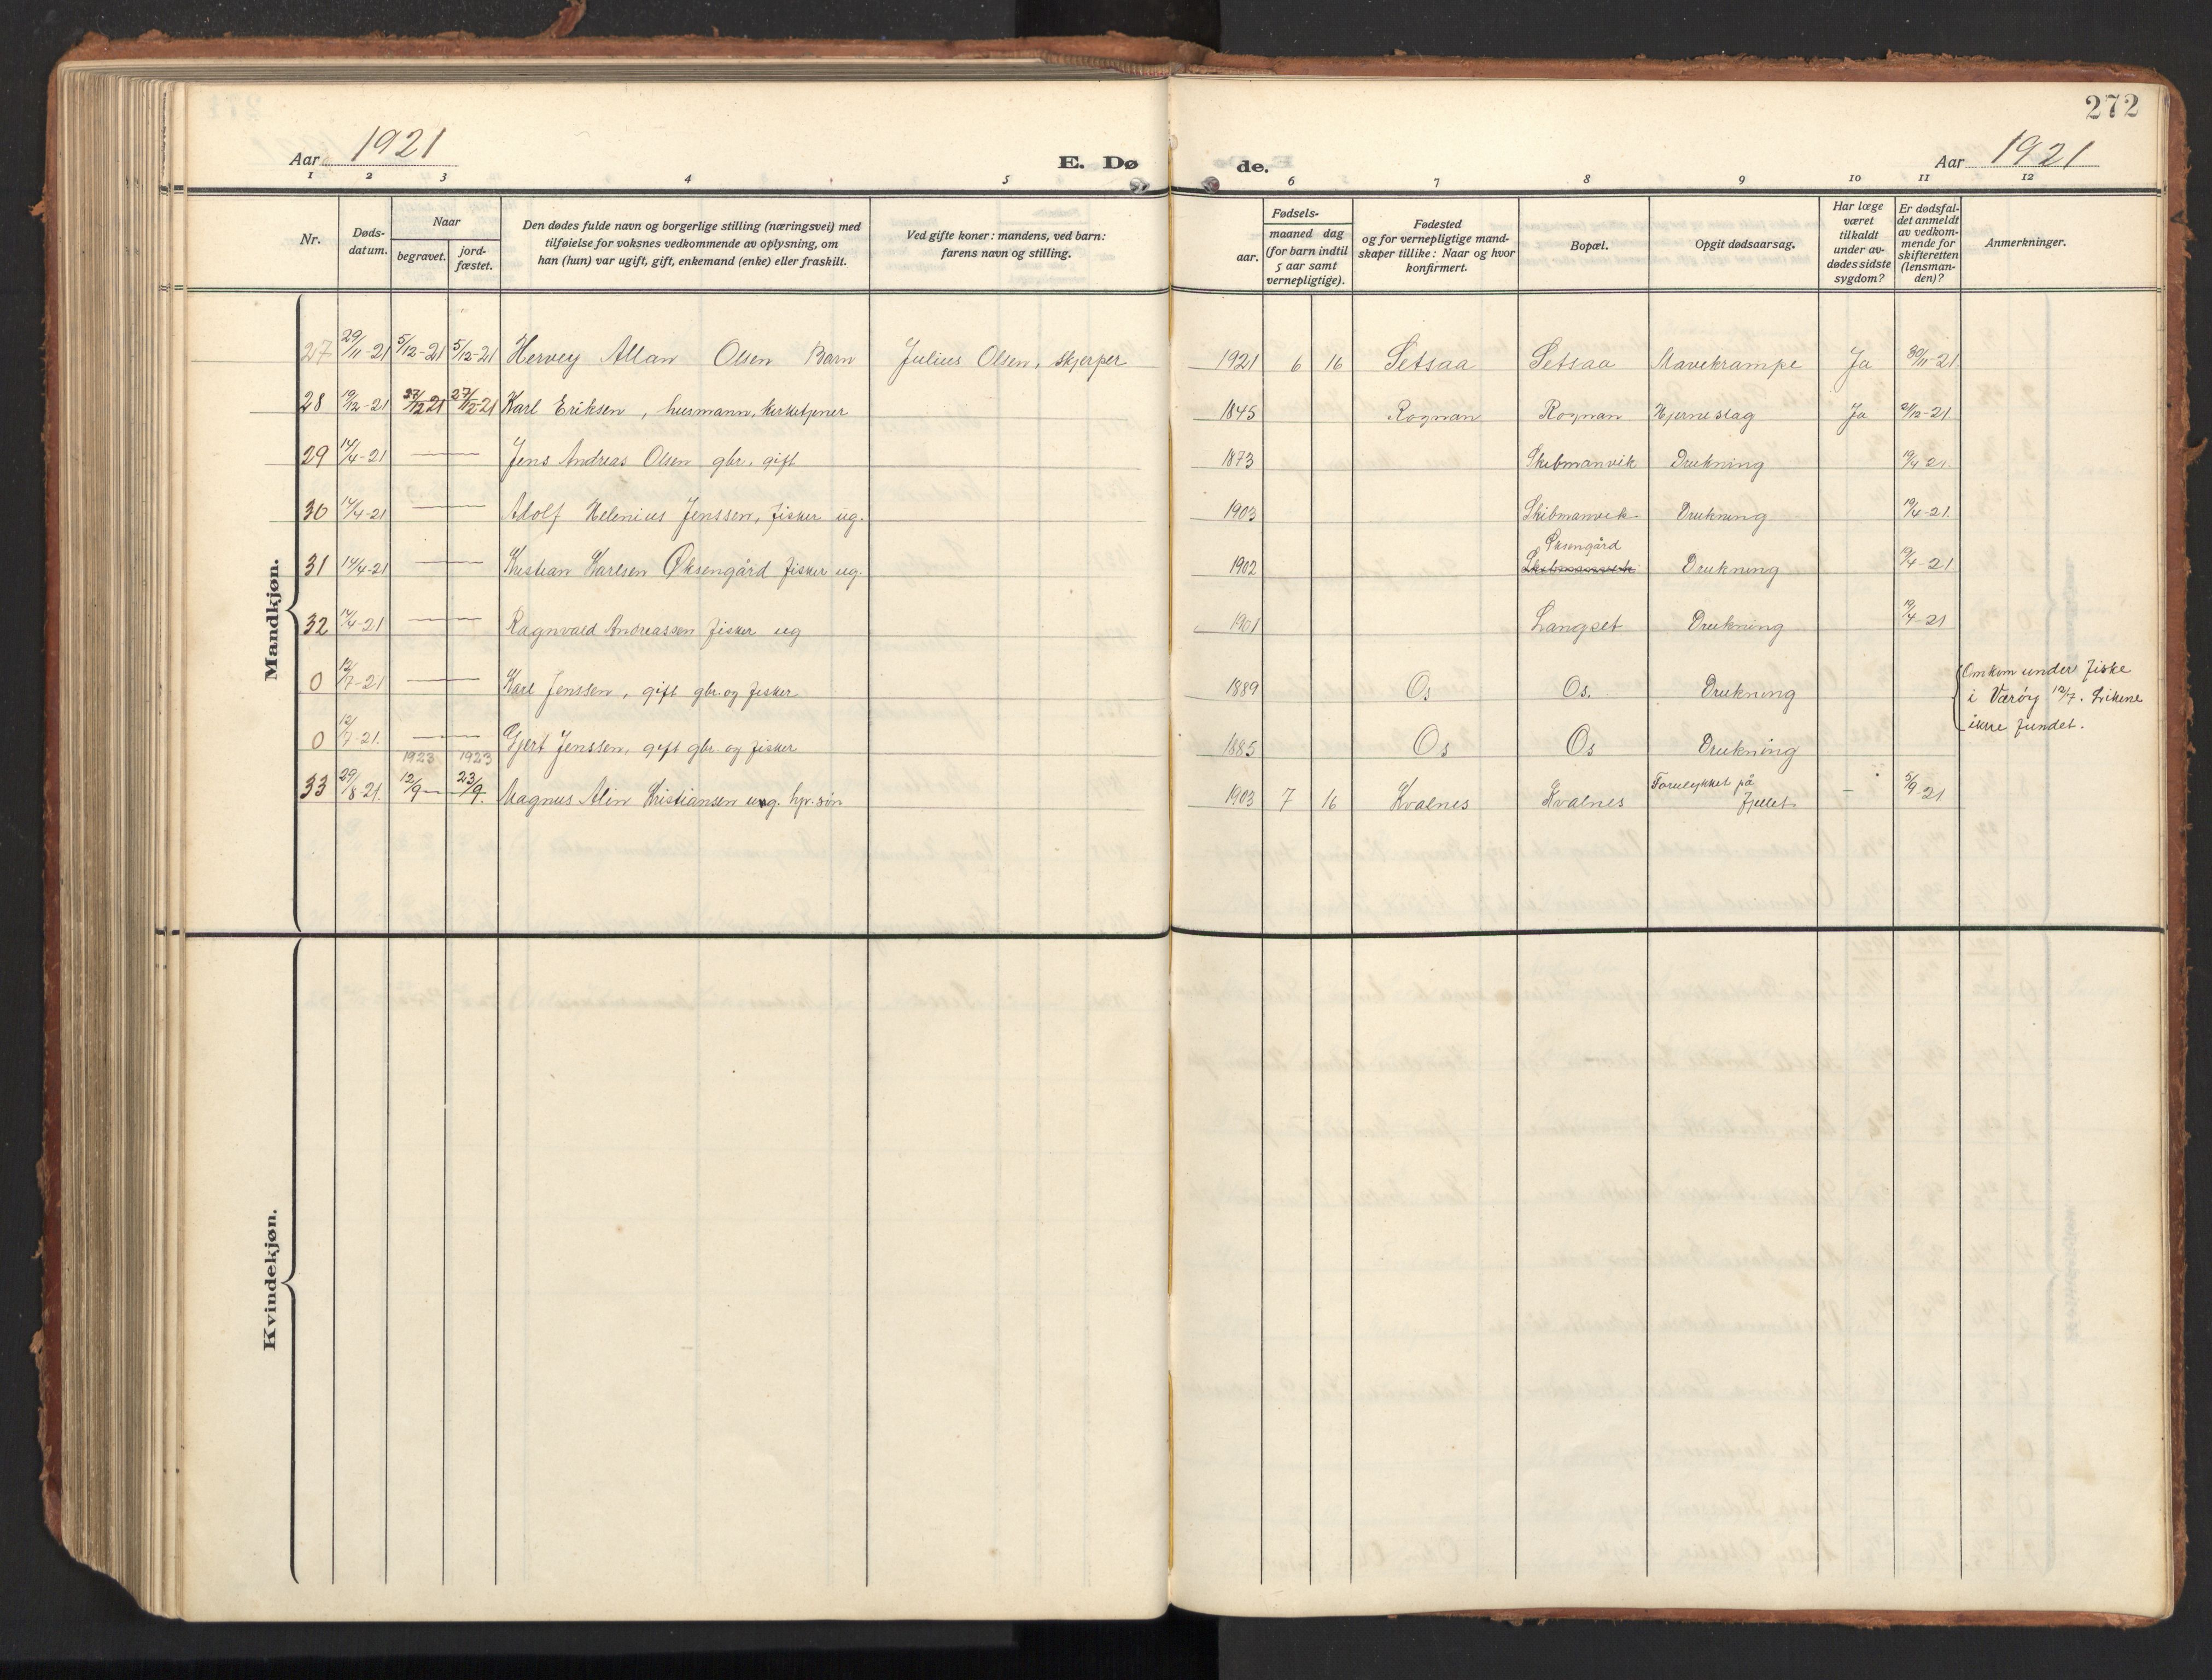 272
Aar 1921
E. Dø
de.
Aar 1921
1 2 3 4 5 6 7 8 9 10 11 12
Nr.
Døds-
datum.
Naar
begravet.
jord-
fæstet.
Den dødes fulde navn og borgerlige stilling (næringsvei) med
tilføielse for voksnes vedkommende av oplysning, om
han (hun) var ugift, gift, enkemand (enke) eller fraskilt.
Ved gifte koner: mandens, ved barn:
farens navn og stilling.
Fødsels-
aar.
maaned dag
(for barn indtil
5 aar samt
vernepligtige).
Fødested
og for vernepligtige mand-
skaper tillike: Naar og hvor
konfirmert.
Bopæl.
Opgit dødsaarsag.
Har læge
været
tilkaldt
under av-
dødes sidste
sygdom?
Er dødsfal-
det anmeldt
av vedkom-
mende for
skifteretten
(lensman-
den)?
Anmerkninger.
Mandkjøn.
27 29/11-21 5/12-21 5/12-21 Hervey Allan Olsen Barn Julius Olsen, skjerper 1921 6 16 Setsaa Setsaa Mavekrampe Ja 30/11-21
28 19/12-21 27/12 21 27/12-21 Karl Eriksen, husmann, kirketjener 1845 Rognan Rognan Hjerneslag Ja 21/12-21
29 14/4-21 — — Jens Andreas Olsen gbr. gift 1873 Skibmanvik Drukning 19/4 21.
30 14/4-21 — — Adolf Helenius Jenssen, fisker ug. 1903 Skibmanvik Drukning 19/4-21.
Øksengård
31 14/4-21 — — Kristian Karlsen Øksengård fisker ug. 1902 Skibmanvik Drukning 19/4-21
32 14/4-21 — — Ragnvald Andreassen fisker ug 1901 Langset Drukning 19/4-21
0 12/7-21 — — Karl Jenssen, gift gbr. og fisker 1889 Os Os. Drukning
Omkom under fiske
i Værøy 12/7. Likene
ikke fundet.
0 12/7-21. — — Gjert Jenssen, gift gbr. og fisker 1885 Os Os Drukning
1923 1923
33 29/8-21. 12/9 — 23/9. Magnus Alin Kristiansen ung. hjv. søn 1903 7 16 Kvalnes Kvalnes Forulykket på
fjellet — 5/9-21
Kvindekjøn.